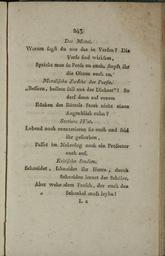 243
Das Mittel.
Warum sagst du uns das in Versen? Die
Verse sind wirksam,
Spricht man in Prosa zu euch, stopft ihr
die Ohren euch zu.
Moralische Zwecke der Poesie.
„Bessern, bessern soll uns der Dichter“! So
darf denn auf eurem
Rücken des Büttels Stock nicht einen
Augenblick ruhn?
Sections Wut.
Lebend noch exenterieren sie euch und seid
ihr gestorben,
Passet im Nekrolog noch ein Prosector
euch auf.
Kritische Studien.
Schneidet, schneidet ihr Herrn, durch
Schneiden lernet der Schüler,
Aber wehe dem Frosch, der euch den
Schenkel muß leyhn!
L 2